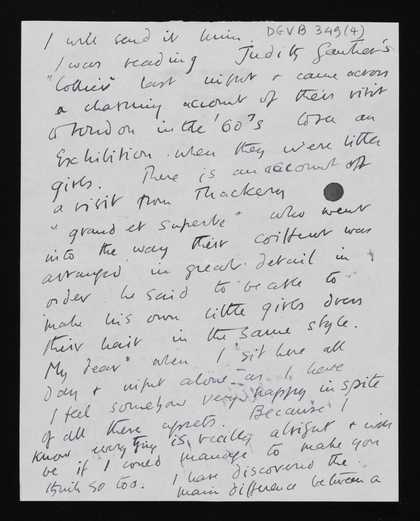 DGVB 349(4)
I will send it him.
I was reading Judith Gautier's
"Collier" last night & came across
a charming account of their visit
to London in the '60"s to see an
Exhibition when they were little
girls. There is an account of
a visit from Thackery
"grand et superbe" who went
into the way their coiffeur was
arranged in great detail in
order he said to be able to
make his own little girls dress
their hair in the same style.
My Dear when I sit here all
day & night alone as I have
I feel somehow very happy in spite
of all these upsets. Because I
know everything is really alright & will
be if I could manage to make you
think so too. I have discovered the
main difference between a